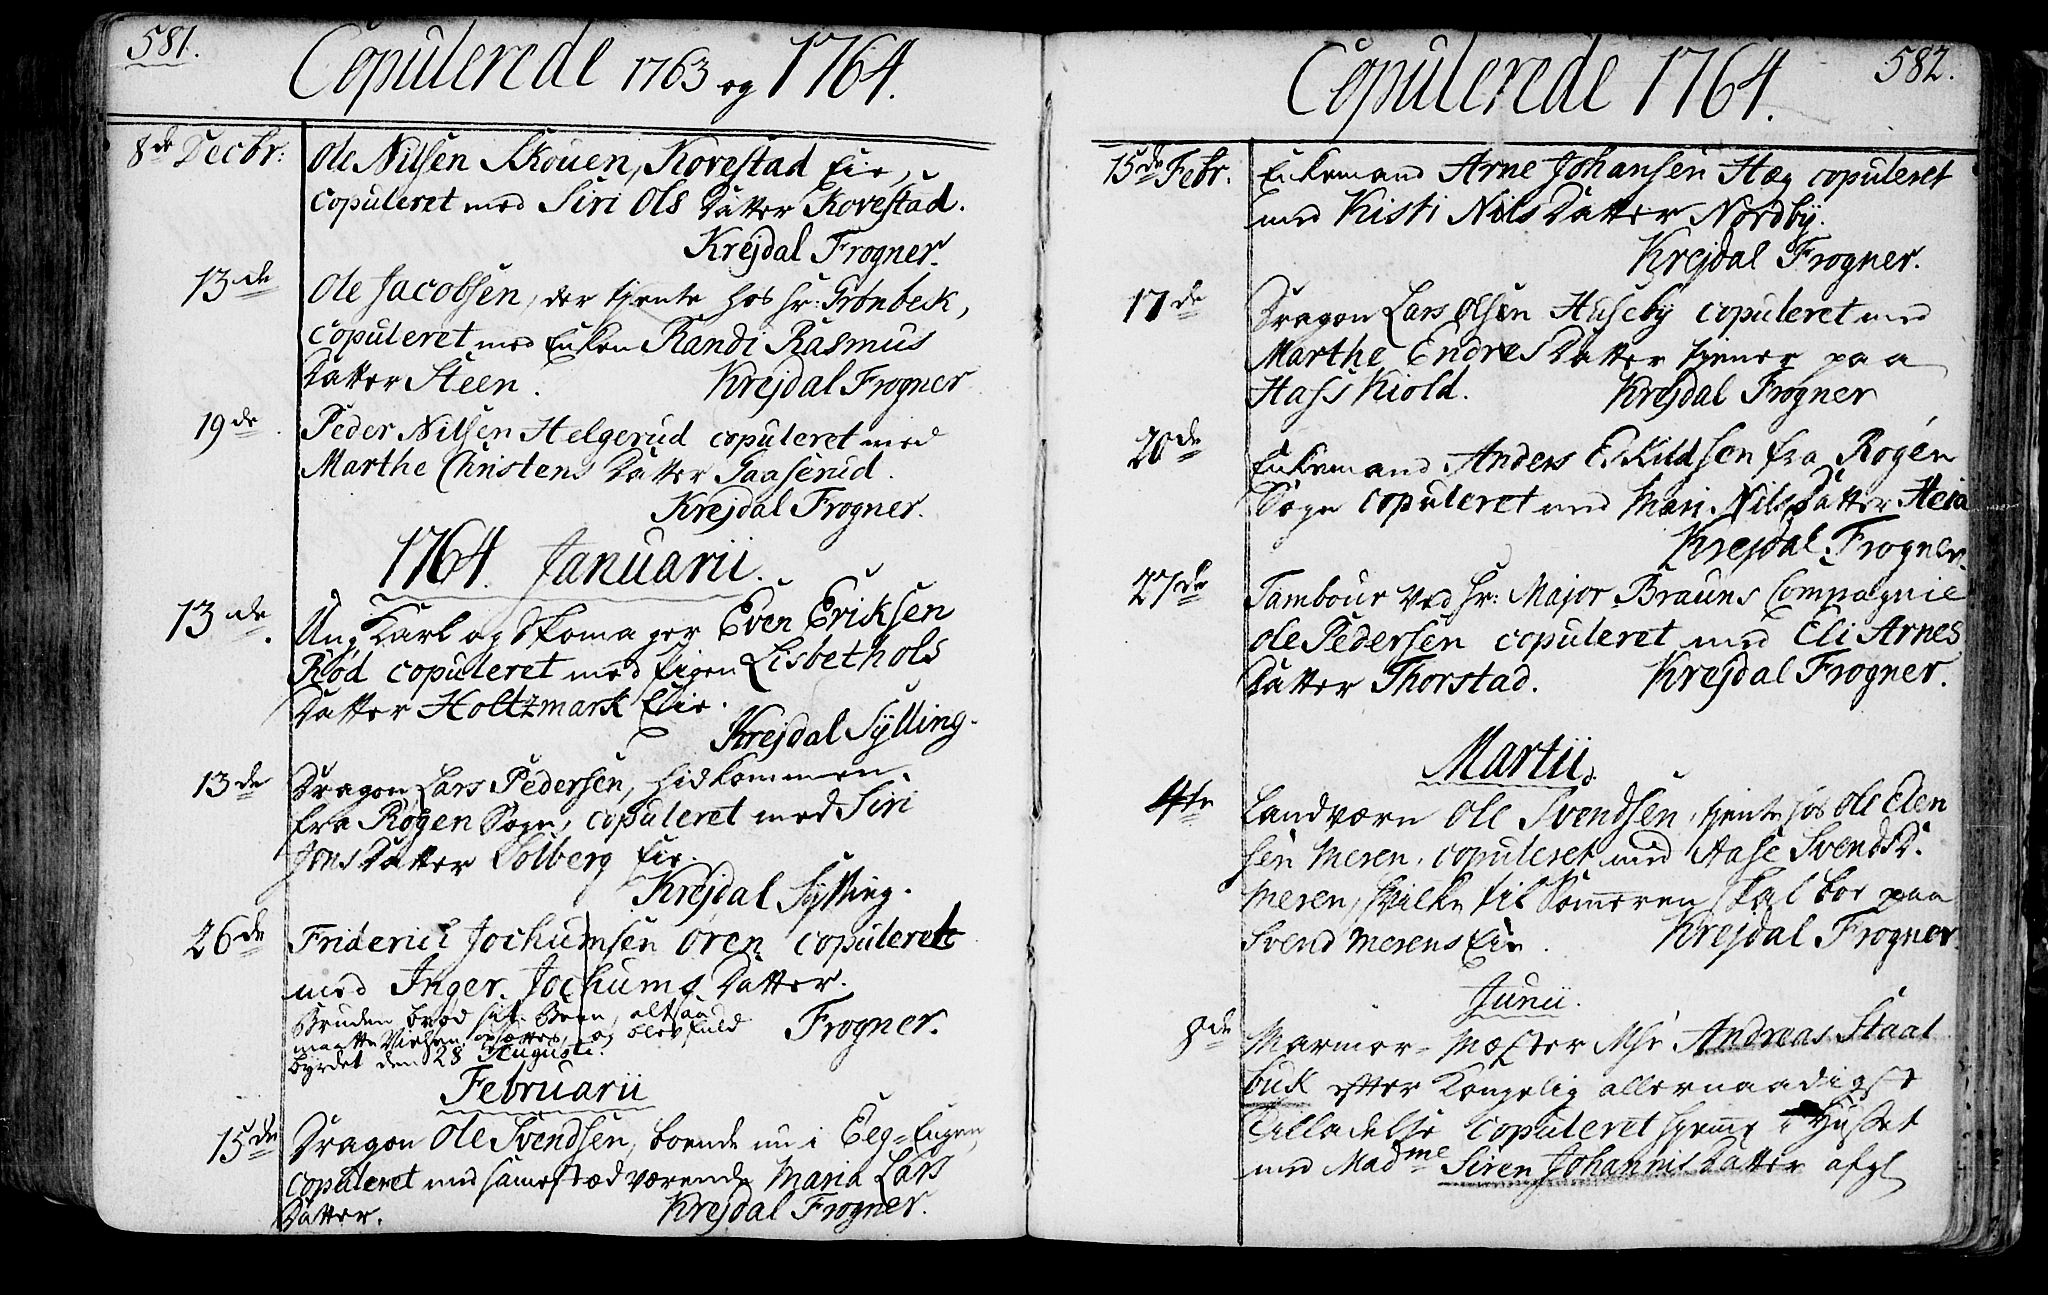 581.
Copulerede 1763 og 1764.
8de Decbr:
Ole Nilsen Skouen, Kovestad Eie,
copuleret med Siri Ols Datter Kovestad.
Krejdal Frogner.
13de
Ole Jacobsen, der tiente hos Hr: Grønbeck,
copuleret med Enken Randi Rasmus
Datter Steen. Krejdal Frogner
19de
Peder Nilsen Helgerud copuleret med
Marthe Christens Datter Gaaserud.
Krejdal Frogner.
1764. Januarii.
13de.
Ung Karl og Skomager Even Eriksen
Rød copuleret med Pigen Lisbeth Ols
Datter Holtzmark Eie.
Krejdal Sylling.
13de
Dragon Lars Pedersen, hidkommen
fra Røgen Sogn, copuleret med Siri
Jons Datter Solberg Eie.
Krejdal Sylling.
26de
Friderich Jochumsen Øren copuleret
med Inger Jochums Datter.
Bruden brød sit Been, altsaa
maatte Vielsen opsættes, og blev fuld Frogner.
byrdet den 28 Augusti.
Februarii
15de
Dragon Ole Svendsen, boende nu i Eeg-Engen,
copuleret med samestæd værende Maria Lars
Datter. Krejdal Frogner.
582.
Copulerede 1764.
15de Febr.
Enkemand Arne Johansen Hæg copuleret
med Kisti Nils Datter Nordby.
Krejdal Frogner.
17de
Dragon Lars Olsen Huseby copuleret med
Marthe Endres Datter tiener paa
Hasskiold. Krejdal Frogner
20de
Enkemand Anders Eskildsen fra Røgen
Sogn copuleret med Mari Nils Datter Heia
Krejdal Frogner.
27de
Tambour ved Hr: Major Brauns Compagnie
Ole Pedersen copuleret med Eli Arnes
Datter Thorstad. Krejdal Frogner.
Martii
4te
Landværn Ole Svendsen, tiente hos Ole Elen
sen Meren, copuleret med Aase Svends D.
Meren, hvilke til Someren skal boe paa
Svend Merens Eie. Krejdal Frogner
Junii.
8de
Marmor-Mæster Msr Andreas Staal
buk efter Kongelig allernaadigst
Tilladelse copuleret hieme i Huset
med Madme Siren Johannis Datter afgl